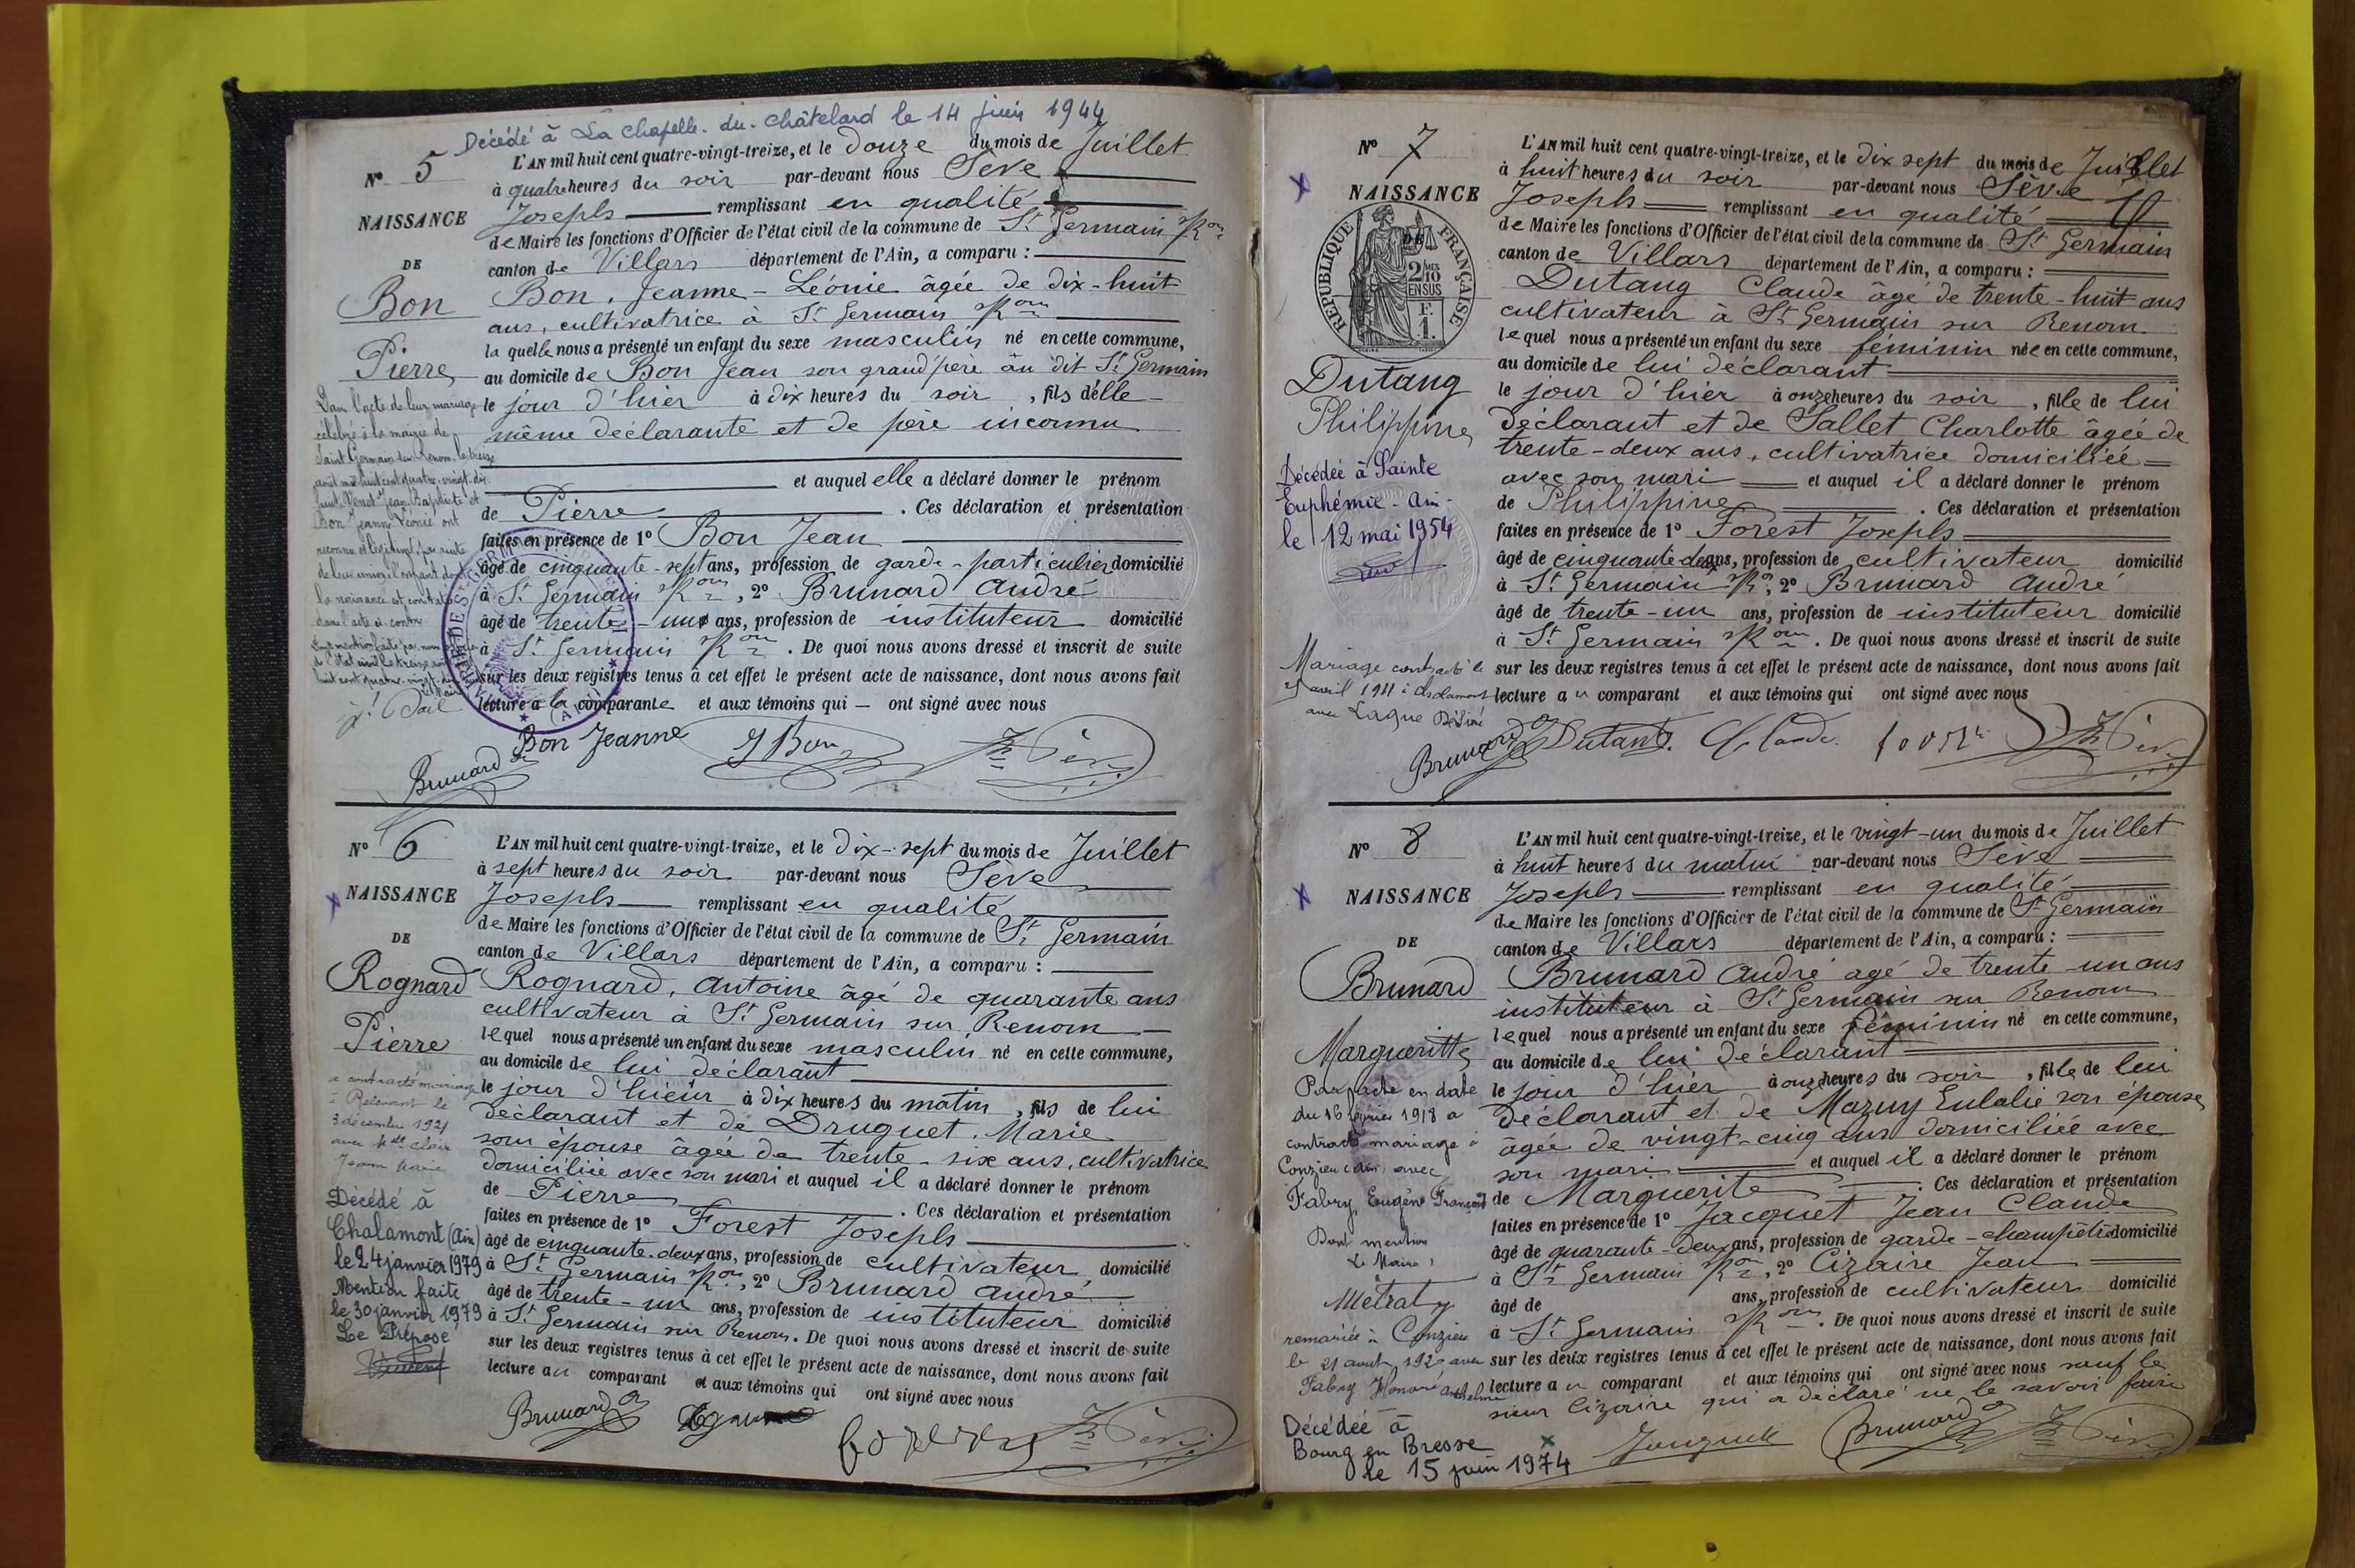 Décédé à La Chapelle-du-Châtelard le 14 juin 1944
N° 5
NAISSANCE
DE
Bon
Pierre
L'AN mil huit cent quatre-vingt-treize, et le douze du mois de Juillet
à quatre heures du soir par-devant nous Sève
Joseph remplissant en qualité
de Maire les fonctions d'Officier de l'état civil de la commune de St Germain s/Ron
canton de Villars département de l'Ain, a comparu :
Bon, Jeanne-Léonie âgée de dix-huit
ans, cultivatrice à St Germain s/Ron
la quelle nous a présenté un enfant du sexe masculin né en cette commune,
au domicile de Bon Jean son grand'père au dit St Germain
le jour d'hier à dix heures du soir, fils d'elle-
même déclarante et de père inconnu
et auquel elle a déclaré donner le prénom
de Pierre. Ces déclaration et présentation
faites en présence de 1° Bon Jean
âgé de cinquante-sept ans, profession de garde-particulier domicilié
à St Germain s/Ron, 2° Brunard André
âgé de trente-un ans, profession de instituteur domicilié
à St Germain s/Ron. De quoi nous avons dressé et inscrit de suite
sur les deux registres tenus à cet effet le présent acte de naissance, dont nous avons fait
lecture a la comparante et aux témoins qui — ont signé avec nous
Dans l'acte de leur mariage
célébré à la mairie de
Saint Germain sur Renom, le treize
août mil huit cent quatre-vingt-dix
huit, Venet Jean Baptiste et
Bon Jeanne Léonie ont
reconnu et légitimé, par suite
de leur union, l'enfant dont
la naissance est constatée
dans l'acte ci-contre
Bon Jeanne JBon Jh Sève
Brunard A
N° 6
NAISSANCE
DE
Rognard
Pierre
L'AN mil huit cent quatre-vingt-treize, et le dix-sept du mois de Juillet
à sept heures du soir par-devant nous Sève
Joseph remplissant en qualité
de Maire les fonctions d'Officier de l'état civil de la commune de St Germain
canton de Villars département de l'Ain, a comparu :
Rognard, Antoine âgé de quarante ans
cultivateur à St Germain sur Renom
lequel nous a présenté un enfant du sexe masculin né en cette commune,
au domicile de lui déclarant
le jour d'hieur à dix heures du matin, fils de lui
déclarant et de Druguet, Marie
son épouse âgée de trente-six ans, cultivatrice
domiciliée avec son mari et auquel il a déclaré donner le prénom
de Pierre. Ces déclaration et présentation
faites en présence de 1° Forest Joseph
âgé de cinquante-deux ans, profession de cultivateur domicilié
à St Germain s/Ron, 2° Brunard André
âgé de trente-un ans, profession de instituteur domicilié
à St Germain sur Renom. De quoi nous avons dressé et inscrit de suite
sur les deux registres tenus à cet effet le présent acte de naissance, dont nous avons fait
lecture au comparant et aux témoins qui ont signé avec nous
a contracté mariage
à Relevant le
3 décembre 1921
avec
Jeanne Marie
Décédé à
Chalamont (Ain)
le 24 janvier 1979
Mention faite
le 30 janvier 1979
Le Préposé
Brunard A Jh Sève
N° 7
NAISSANCE
DE
RÉPUBLIQUE FRANÇAISE
2/10 MES
EN SUS
F.
1.
Dutang
Philippine
L'AN mil huit cent quatre-vingt-treize, et le dix sept du mois de Juillet
à huit heures du soir par-devant nous Sève
Joseph remplissant en qualité
de Maire les fonctions d'Officier de l'état civil de la commune de St Germain
canton de Villars département de l'Ain, a comparu :
Dutang Claude âgé de trente-huit ans
cultivateur à St Germain sur Renom
lequel nous a présenté un enfant du sexe féminin née en cette commune,
au domicile de lui déclarant
le jour d'hier à onze heures du soir, fille de lui
déclarant et de Sallet Charlotte âgée de
trente-deux ans, cultivatrice domiciliée
avec son mari et auquel il a déclaré donner le prénom
de Philippine. Ces déclaration et présentation
faites en présence de 1° Forest Joseph
âgé de cinquante deux ans, profession de cultivateur domicilié
à St Germain s/Ron, 2° Brunard André
âgé de trente-un ans, profession de instituteur domicilié
à St Germain s/Rom. De quoi nous avons dressé et inscrit de suite
sur les deux registres tenus à cet effet le présent acte de naissance, dont nous avons fait
lecture au comparant et aux témoins qui ont signé avec nous
Décédée à Sainte
Euphémie - Ain -
le 12 mai 1954
Mariage contracté le
avril 1911 à
avec Lagne Désiré
Brunard A Dutant Claude Jh Sève
N° 8
NAISSANCE
DE
Brunard
Margueritte
L'AN mil huit cent quatre-vingt-treize, et le vingt-un du mois de Juillet
à huit heures du matin par-devant nous Sève
Joseph remplissant en qualité
de Maire les fonctions d'Officier de l'état civil de la commune de St Germain
canton de Villars département de l'Ain, a comparu :
Brunard André agé de trente-un ans
instituteur à St Germain sur Renom
lequel nous a présenté un enfant du sexe féminin né en cette commune,
au domicile de lui déclarant
le jour d'hier à onze heures du soir, fille de lui
déclarant et de Mazuy Eulalie son épouse
âgée de vingt-cinq ans domiciliée avec
son mari et auquel il a déclaré donner le prénom
de Marguerite. Ces déclaration et présentation
faites en présence de 1° Jacquet Jean Claude
âgé de quarante-deux ans, profession de garde-champêtre domicilié
à St Germain s/Ron, 2° Cizaire Jean
âgé de ans, profession de cultivateur domicilié
à St Germain s/Rom. De quoi nous avons dressé et inscrit de suite
sur les deux registres tenus à cet effet le présent acte de naissance, dont nous avons fait
lecture au comparant et aux témoins qui ont signé avec nous sauf le
sieur Cizaire qui a déclaré ne le savoir faire
Par acte en date
du 16 février 1918 a
contracté mariage à
Conzieu (Ain) avec
Fabry, Eugène François
Dont mention
Le Maire,
Métral
remariée à Conzieu
le 21 1920 avec
Fabry Honoré Anthelme
Décédée à
Bourg en Bresse
le 15 juin 1974
Brunard A Jh Sève